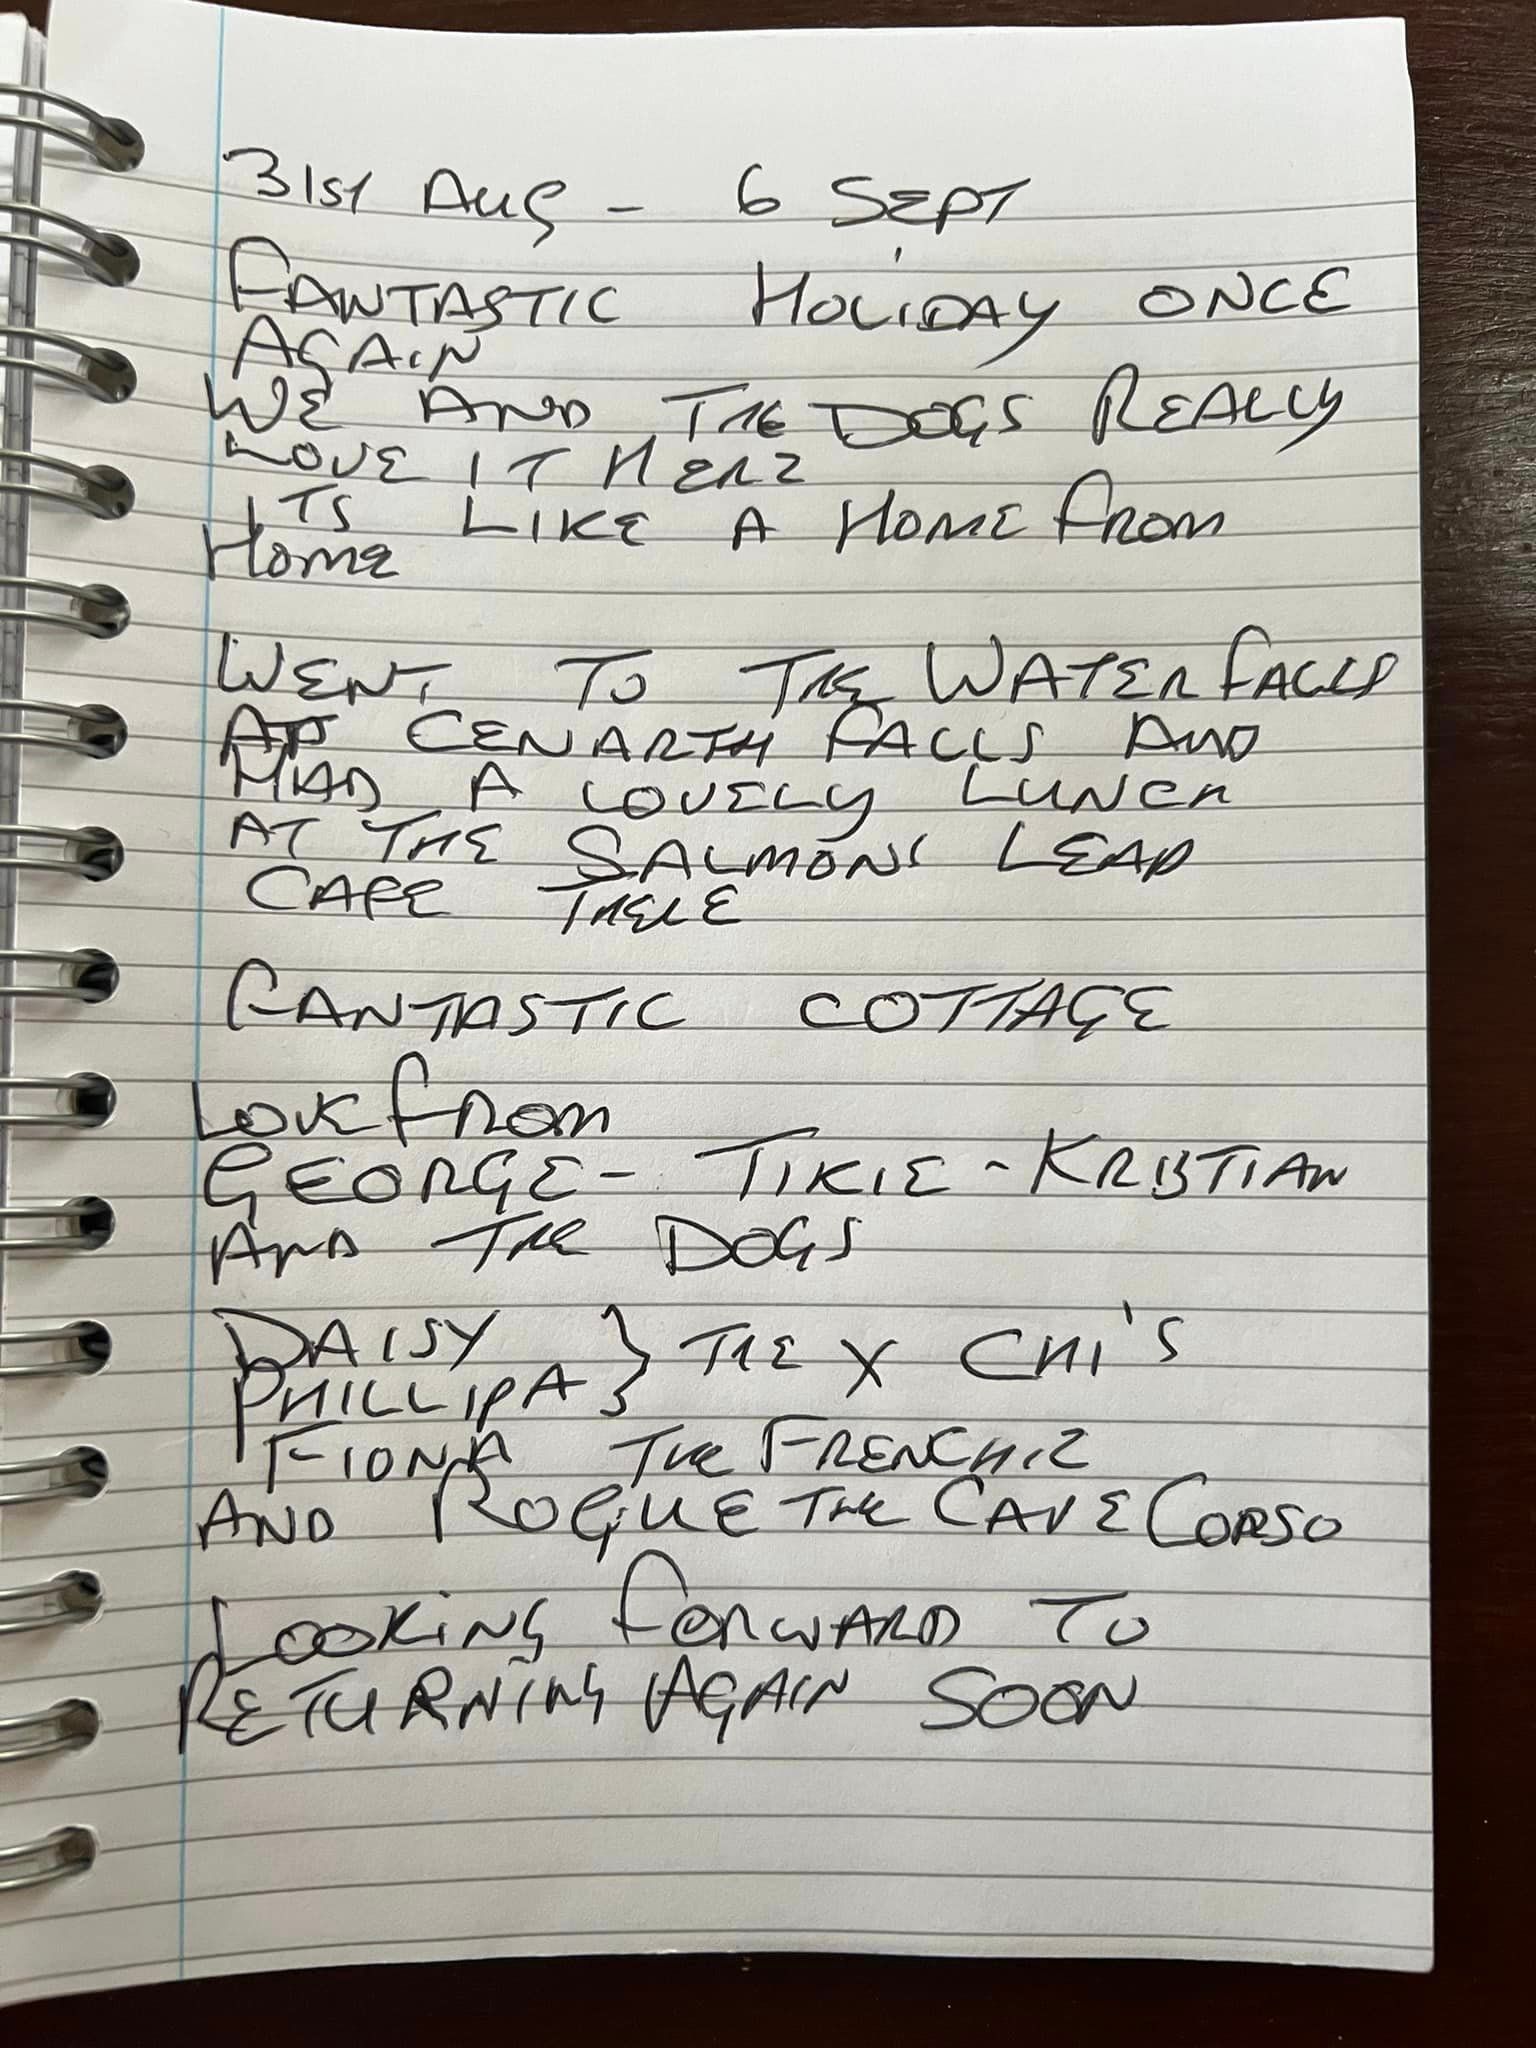 31ST AUG - 6 SEPT
FANTASTIC HOLIDAY ONCE
AGAIN
WE AND THE DOGS REALLY
LOVE IT HERE
ITS LIKE A HOME FROM
HOME
WENT TO THE WATERFALLS
AT CENARTH FALLS AND
HAD A LOVELY LUNCH
AT THE SALMONS LEAP
CAFE THERE
FANTASTIC COTTAGE
LOVE FROM
GEORGE - TIKIE - KRISTIAN
AND THE DOGS
DAISY } THE X CHI'S
PHILLIPA
FIONA THE FRENCHIE
AND ROGUE THE CANE CORSO
LOOKING FORWARD TO
RETURNING AGAIN SOON